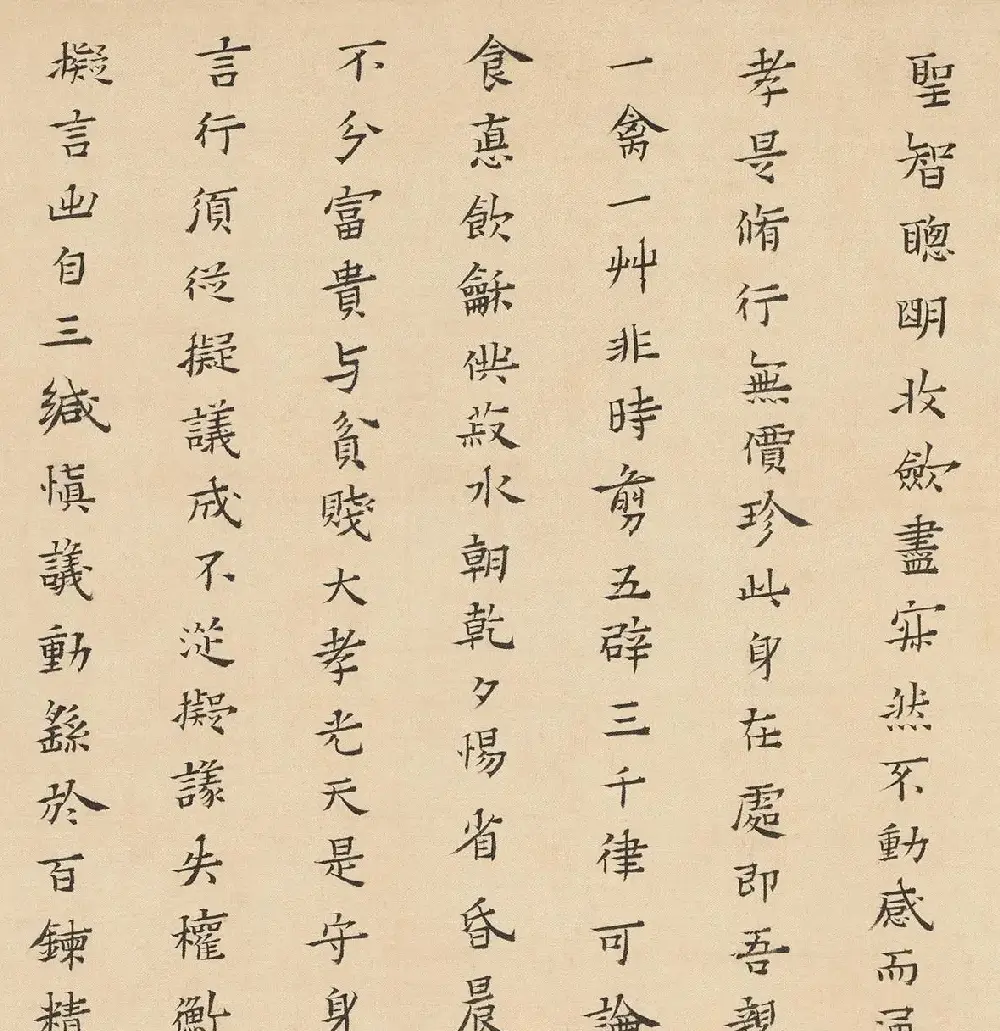 聖智聰明收斂盡寂然不動感而
孝是脩行無價珍此身在處即吾親
一禽一艸非時剪五辟三千律可論
食悳飲龢供菽水朝乾夕惕省昏晨
不分富貴与貧賤大孝光天是守身
言行須從擬議成不從擬議失權衡
擬言出自三緘慎議動繇於百鍊精